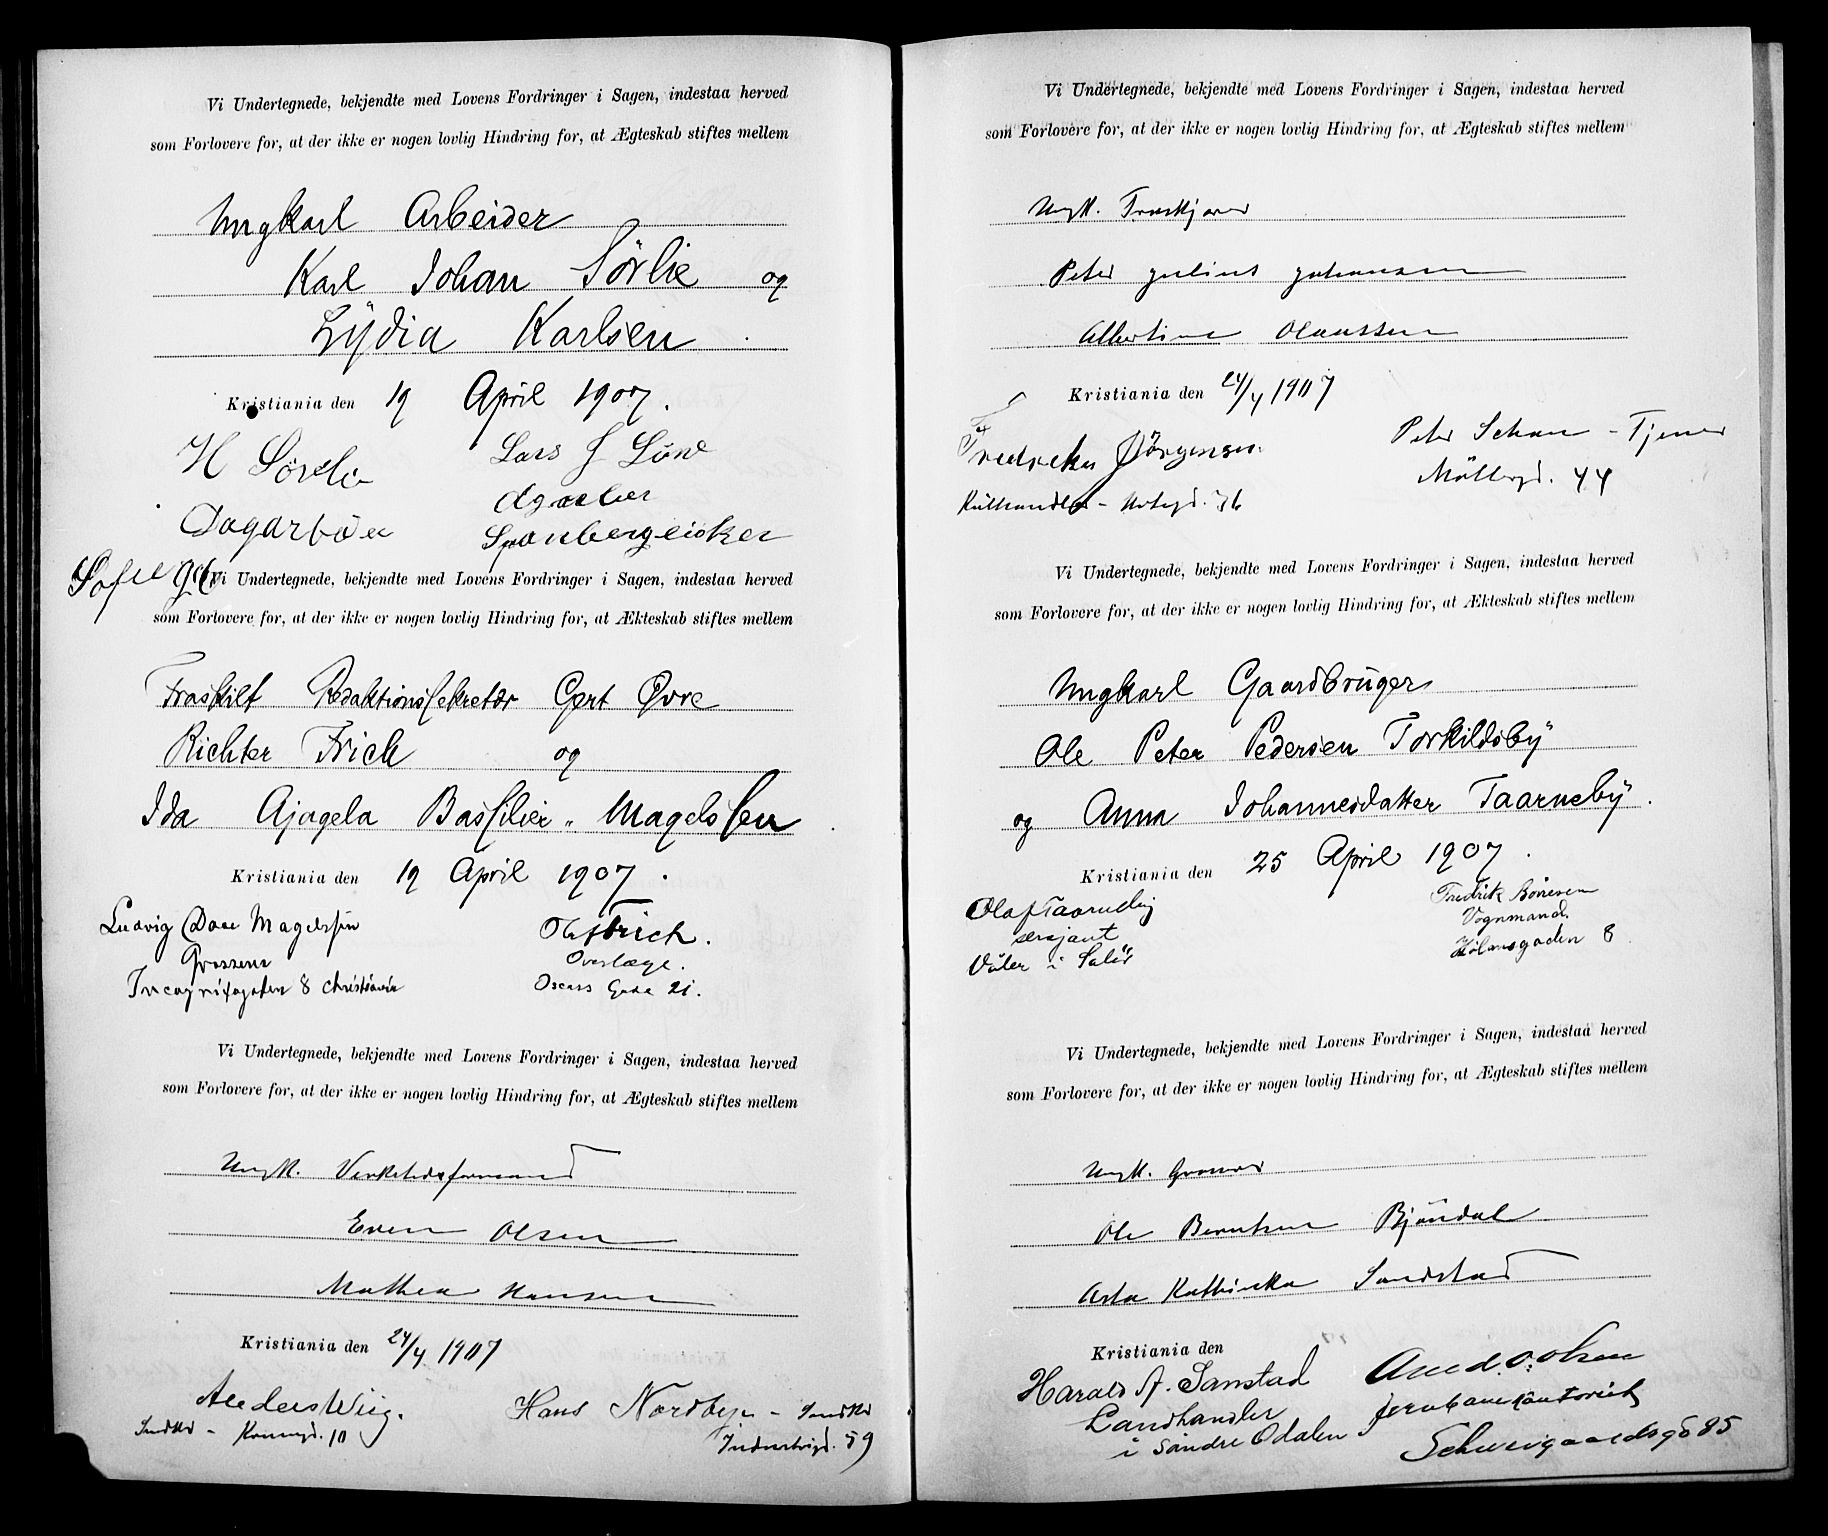 Vi Undertegnede, bekjendte med Lovens Fordringer i Sagen, indestaa herved
som Forlovere for, at der ikke er nogen lovlig Hindring for, at Ægteskab stiftes mellem
Ungkarl Arbeider
Karl Johan Sörlie og
Lydia Karlsen.
Kristiania den 19 April 1907.
H Sörlie
Dagarbeider
Sofieg
Lars J Lune
Spanbergeicker
Vi Undertegnede, bekjendte med Lovens Fordringer i Sagen, indestaa herved
som Forlovere for, at der ikke er nogen lovlig Hindring for, at Ækteskab stiftes mellem
Fraskilt Redaktionssekretær Gert Øvre
Richter Frich og
Ida Ajagela Bassilier-Magelssen.
Kristiania den 19 April 1907.
Ludvig Daae Magelssen
Grosserer
Incognitogaden 8 Christiania
Ole Frich.
Overlæge.
Oscars Gade 21.
Vi Undertegnede, bekjendte med Lovens Fordringer i Sagen, indestaa herved
som Forlovere for, at der ikke er nogen lovlig Hindring for, at Ægteskab stiftes mellem
Ungk. Verkstedsformand
Even Olsen
Mathea Hansen
Kristiania den 24/4 1907
Anders Wiig.
Snedker - Kongsgd. 10
Hans Nordbye - Snedker
Industrigd. 59
Vi Undertegnede, bekjendte med Lovens Fordringer i Sagen, indestaa herved
som Forlovere for, at der ikke er nogen lovlig Hindring for, at Ægteskab stiftes mellem
Ungk.
Peter Julius Johansen
Albertine Olaussen
Kristiania den 24/4 1907
Fredrik Jörgensen
Kulhandler - 36
Peter Schau - Tjener
Möllergd. 44
Vi Undertegnede, bekjendte med Lovens Fordringer i Sagen, indestaa herved
som Forlovere for, at der ikke er nogen lovlig Hindring for, at Ækteskab stiftes mellem
Ungkarl Gaardbruger
Ole Peter Pedersen Torkildsby
og Anna Johannesdatter Taarneby.
Kristiania den 25 April 1907.
Olaf Taarneby
sersjant
Våler i Solör
Fredrik Börresen
Vognmand.
Hölandsgaden 8
Vi Undertegnede, bekjendte med Lovens Fordringer i Sagen, indestaa herved
som Forlovere for, at der ikke er nogen lovlig Hindring for, at Ægteskab stiftes mellem
Ungk. Grosserer
Ole Berntsen Bjöndal
Asta Kathinka Sandstad
Kristiania den
Harald A. Sanstad
Landhandler
i Söndre Odalen
Amd. O. Olsen
Jernbanekontorist
Schweigaardsgd 85